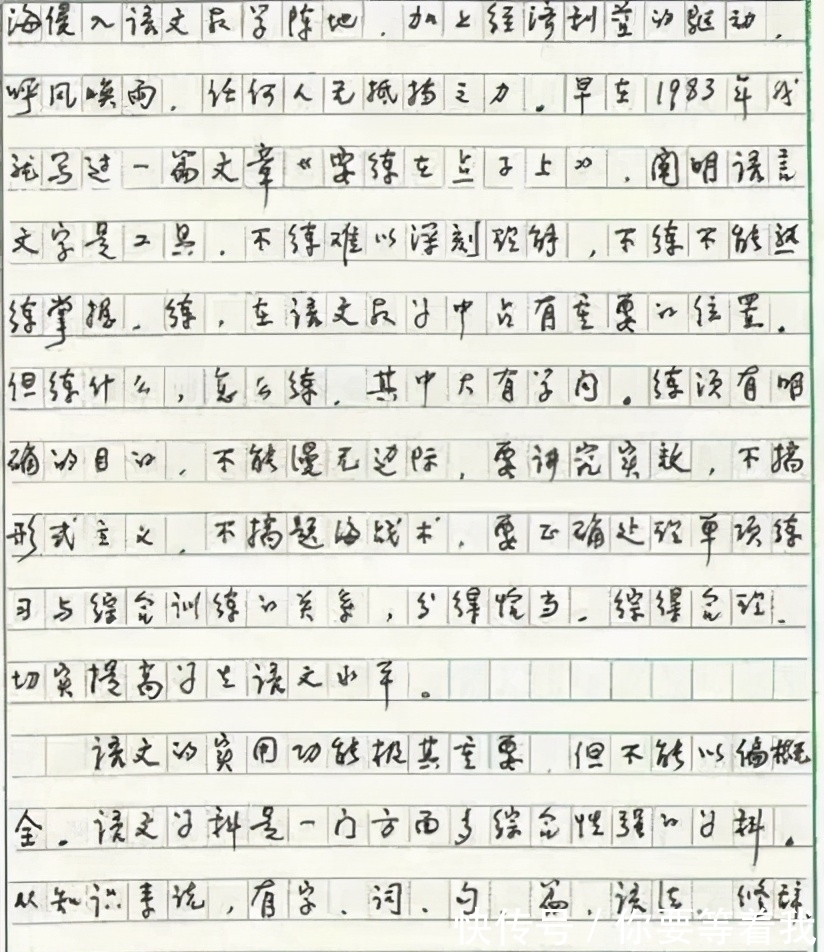 海侵入语文教学阵地，加上经济利益的驱动，
呼风唤雨，任何人无抵挡之力。早在1983年我
就写过一篇文章《要练在点子上》，阐明语言
文字是工具，不练难以深刻理解，不练不能熟
练掌握。练，在语文教学中占有重要的位置。
但练什么，怎么练，其中大有学问。练须有明
确的目的，不能漫无边际，要讲究实效，不搞
形式主义，不搞题海战术，要正确处理单项练
习与综合训练的关系，分得恰当，综得合理，
切实提高学生语文水平。
语文的实用功能极其重要，但不能以偏概
全。语文学科是一门方面多综合性强的学科。
从知识来说，有字、词、句、篇、语法、修辞
快传号/你要等着我